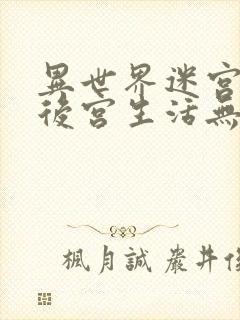 異世界迷宮
後宮生活無
楓月誠 巖井俊